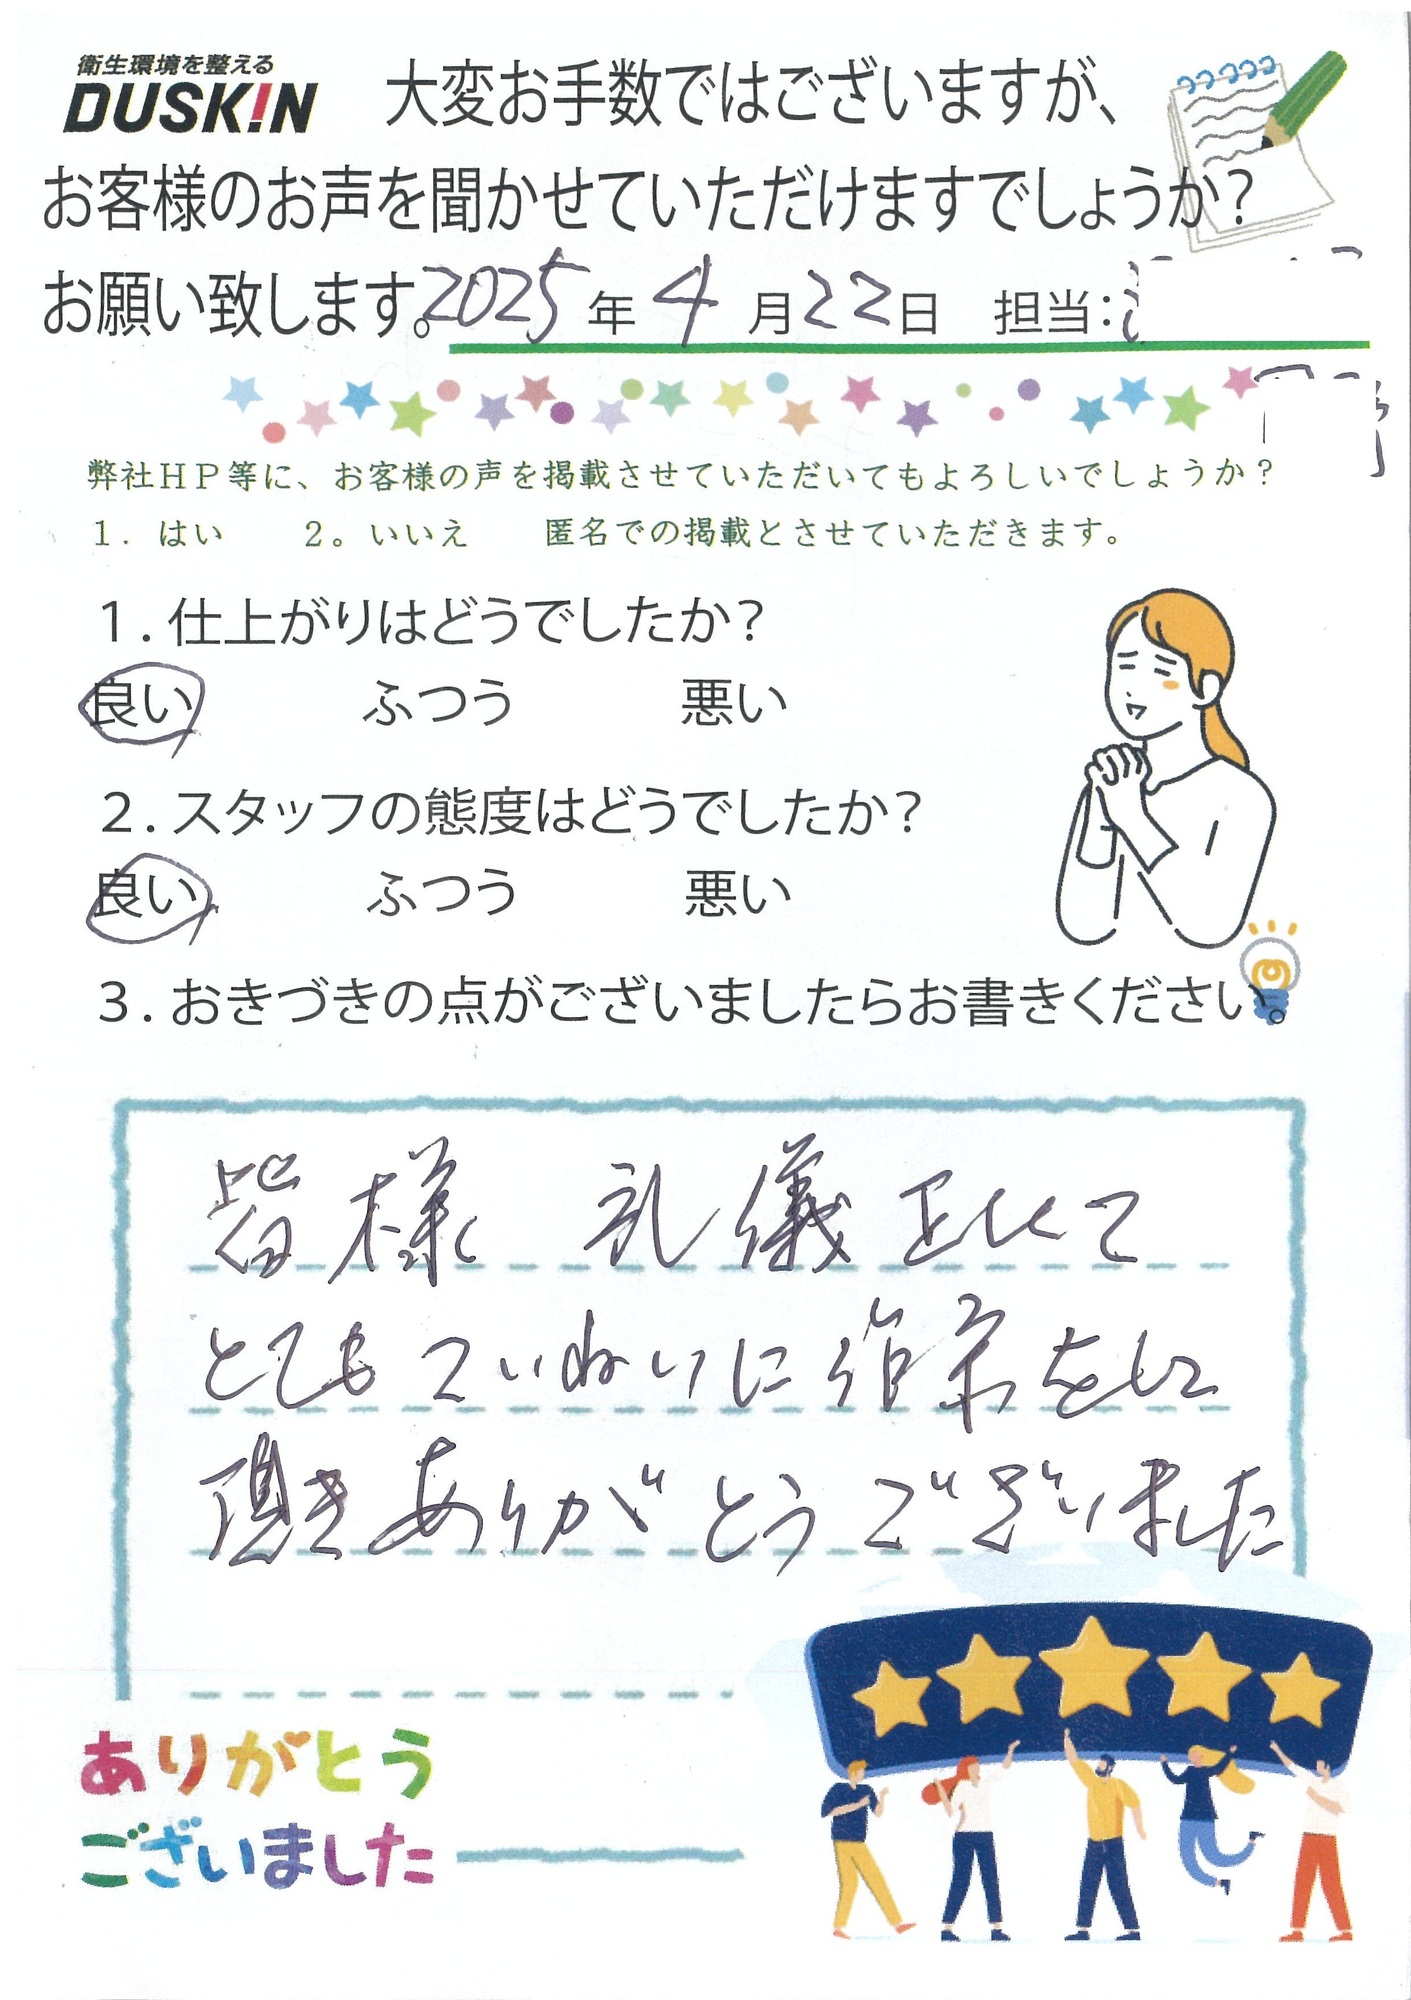 衛生環境を整える
DUSKIN
大変お手数ではございますが、
お客様のお声を聞かせていただけますでしょうか?
お願い致します。2025年4月22日 担当:
弊社HP等に、お客様の声を掲載させていただいてもよろしいでしょうか?
1. はい 2。いいえ 匿名での掲載とさせていただきます。
1.仕上がりはどうでしたか?
良い ふつう 悪い
2.スタッフの態度はどうでしたか?
良い ふつう 悪い
3.おきづきの点がございましたらお書きください。
皆様 礼儀正しくて
とてもていねいに作業をして
頂きありがとうございました
ありがとう
ございました